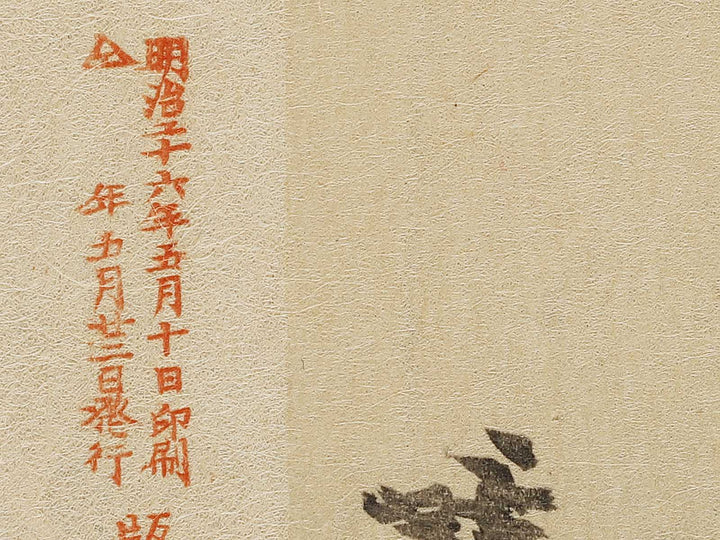 明治二十六年五月十日印刷
年五月廿三日発行
版